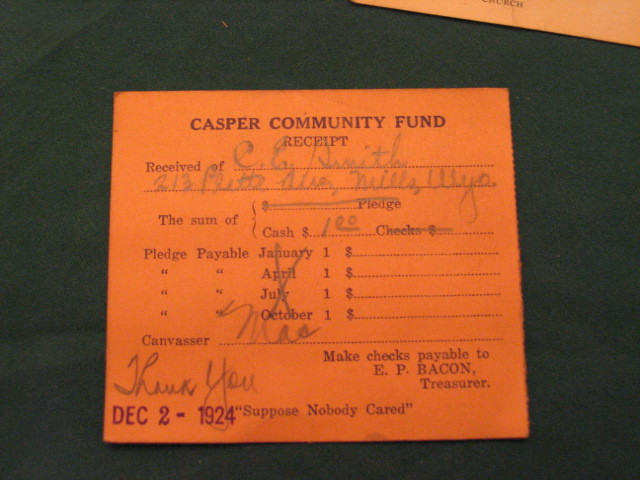 CHURCH
CASPER COMMUNITY FUND
RECEIPT
Received of C. E. Smith
213 Platte Ave, Mills, Wyo.
$ Pledge
The sum of
Cash $ 1.00 Checks $
Pledge Payable January 1 $
" " April 1 $
" " July 1 $
" " October 1 $
Canvasser Mac
Make checks payable to
E. P. BACON,
Treasurer.
Thank You
DEC 2 - 1924 "Suppose Nobody Cared"